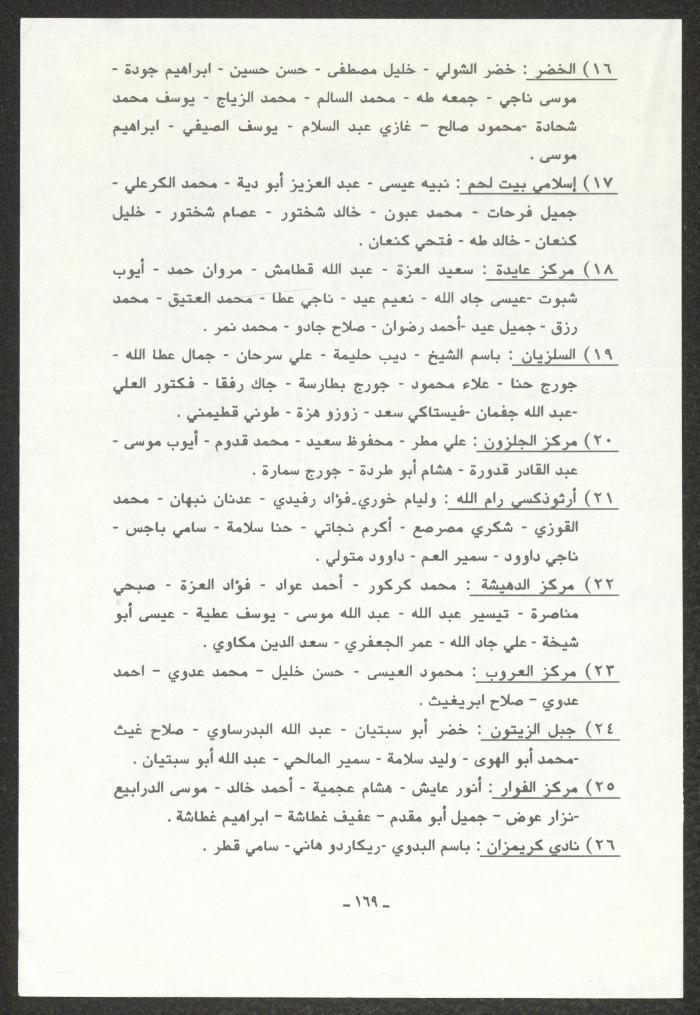 ١٦) الخضر : خضر الشولي - خليل مصطفى - حسن حسين - ابراهيم جودة -
موسى ناجي - جمعه طه - محمد السالم - محمد الزياج - يوسف محمد
شحادة -محمود صالح – غازي عبد السلام - يوسف الصيفي - ابراهيم
موسى .
١٧) إسلامي بيت لحم : نبيه عيسى - عبد العزيز أبو دية - محمد الكرعلي -
جميل فرحات - محمد عبون - خالد شختور - عصام شختور - خليل
كنعان - خالد طه - فتحي كنعان .
١٨) مركز عايدة : سعيد العزة - عبد الله قطامش - مروان حمد - أيوب
شبوت -عيسى جاد الله - نعيم عيد - ناجي عطا - محمد العتيق - محمد
رزق - جميل عيد -أحمد رضوان - صلاح جادو - محمد نمر .
١٩) السلزيان : باسم الشيخ - ديب حليمة - علي سرحان - جمال عطا الله -
جورج حنا - علاء محمود - جورج بطارسة - جاك رفقا - فكتور العلي
-عبد الله جفمان -فيستاكي سعد - زوزو هزة - طوني قطيمني .
٢٠) مركز الجلزون : علي مطر - محفوظ سعيد - محمد قدوم - أيوب موسى -
عبد القادر قدورة - هشام أبو طردة - جورج سمارة .
٢١) أرثوذكسي رام الله : وليام خوري-فؤاد رفيدي - عدنان نبهان - محمد
القوزي - شكري مصرصع - أكرم نجاتي - حنا سلامة - سامي باجس -
ناجي داوود - سمير العم - داوود متولي .
٢٢) مركز الدهيشة : محمد كركور - أحمد عواد - فؤاد العزة - صبحي
مناصرة - تيسير عبد الله - عبد الله موسى - يوسف عطية - عيسى أبو
شيخة - علي جاد الله - عمر الجعفري - سعد الدين مكاوي .
٢٣) مركز العروب : محمود العيسى - حسن خليل – محمد عدوي – احمد
عدوي – صلاح ابريغيث .
٢٤) جبل الزيتون : خضر أبو سبتيان - عبد الله البدرساوي - صلاح غيث
-محمد أبو الهوى - وليد سلامة - سمير المالحي - عبد الله أبو سبتيان .
٢٥) مركز الفوار : أنور عايش - هشام عجمية - أحمد خالد - موسى الدرابيع
-نزار عوض – جميل أبو مقدم – عفيف غطاشة – ابراهيم غطاشة .
٢٦) نادي كريمزان : باسم البدوي -ريكاردو هاني- سامي قطر .
ـ ١٦٩ ـ